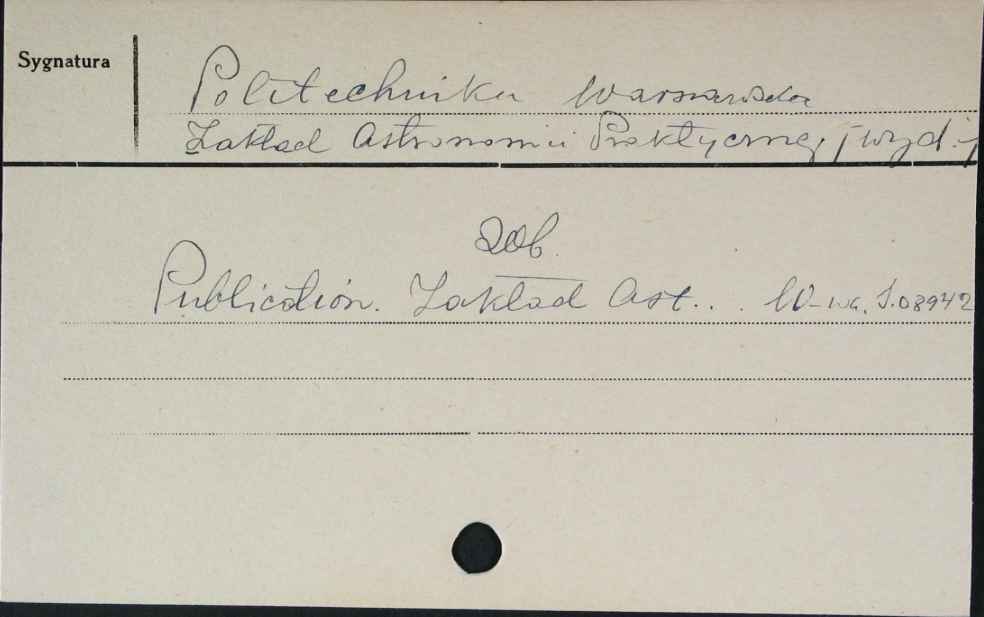 Sygnatura
Politechnika Warszawska
Zakład Astronomii Praktycznej /wyd./
zob.
Publication. Zakład Ast... W-wa. S.08942